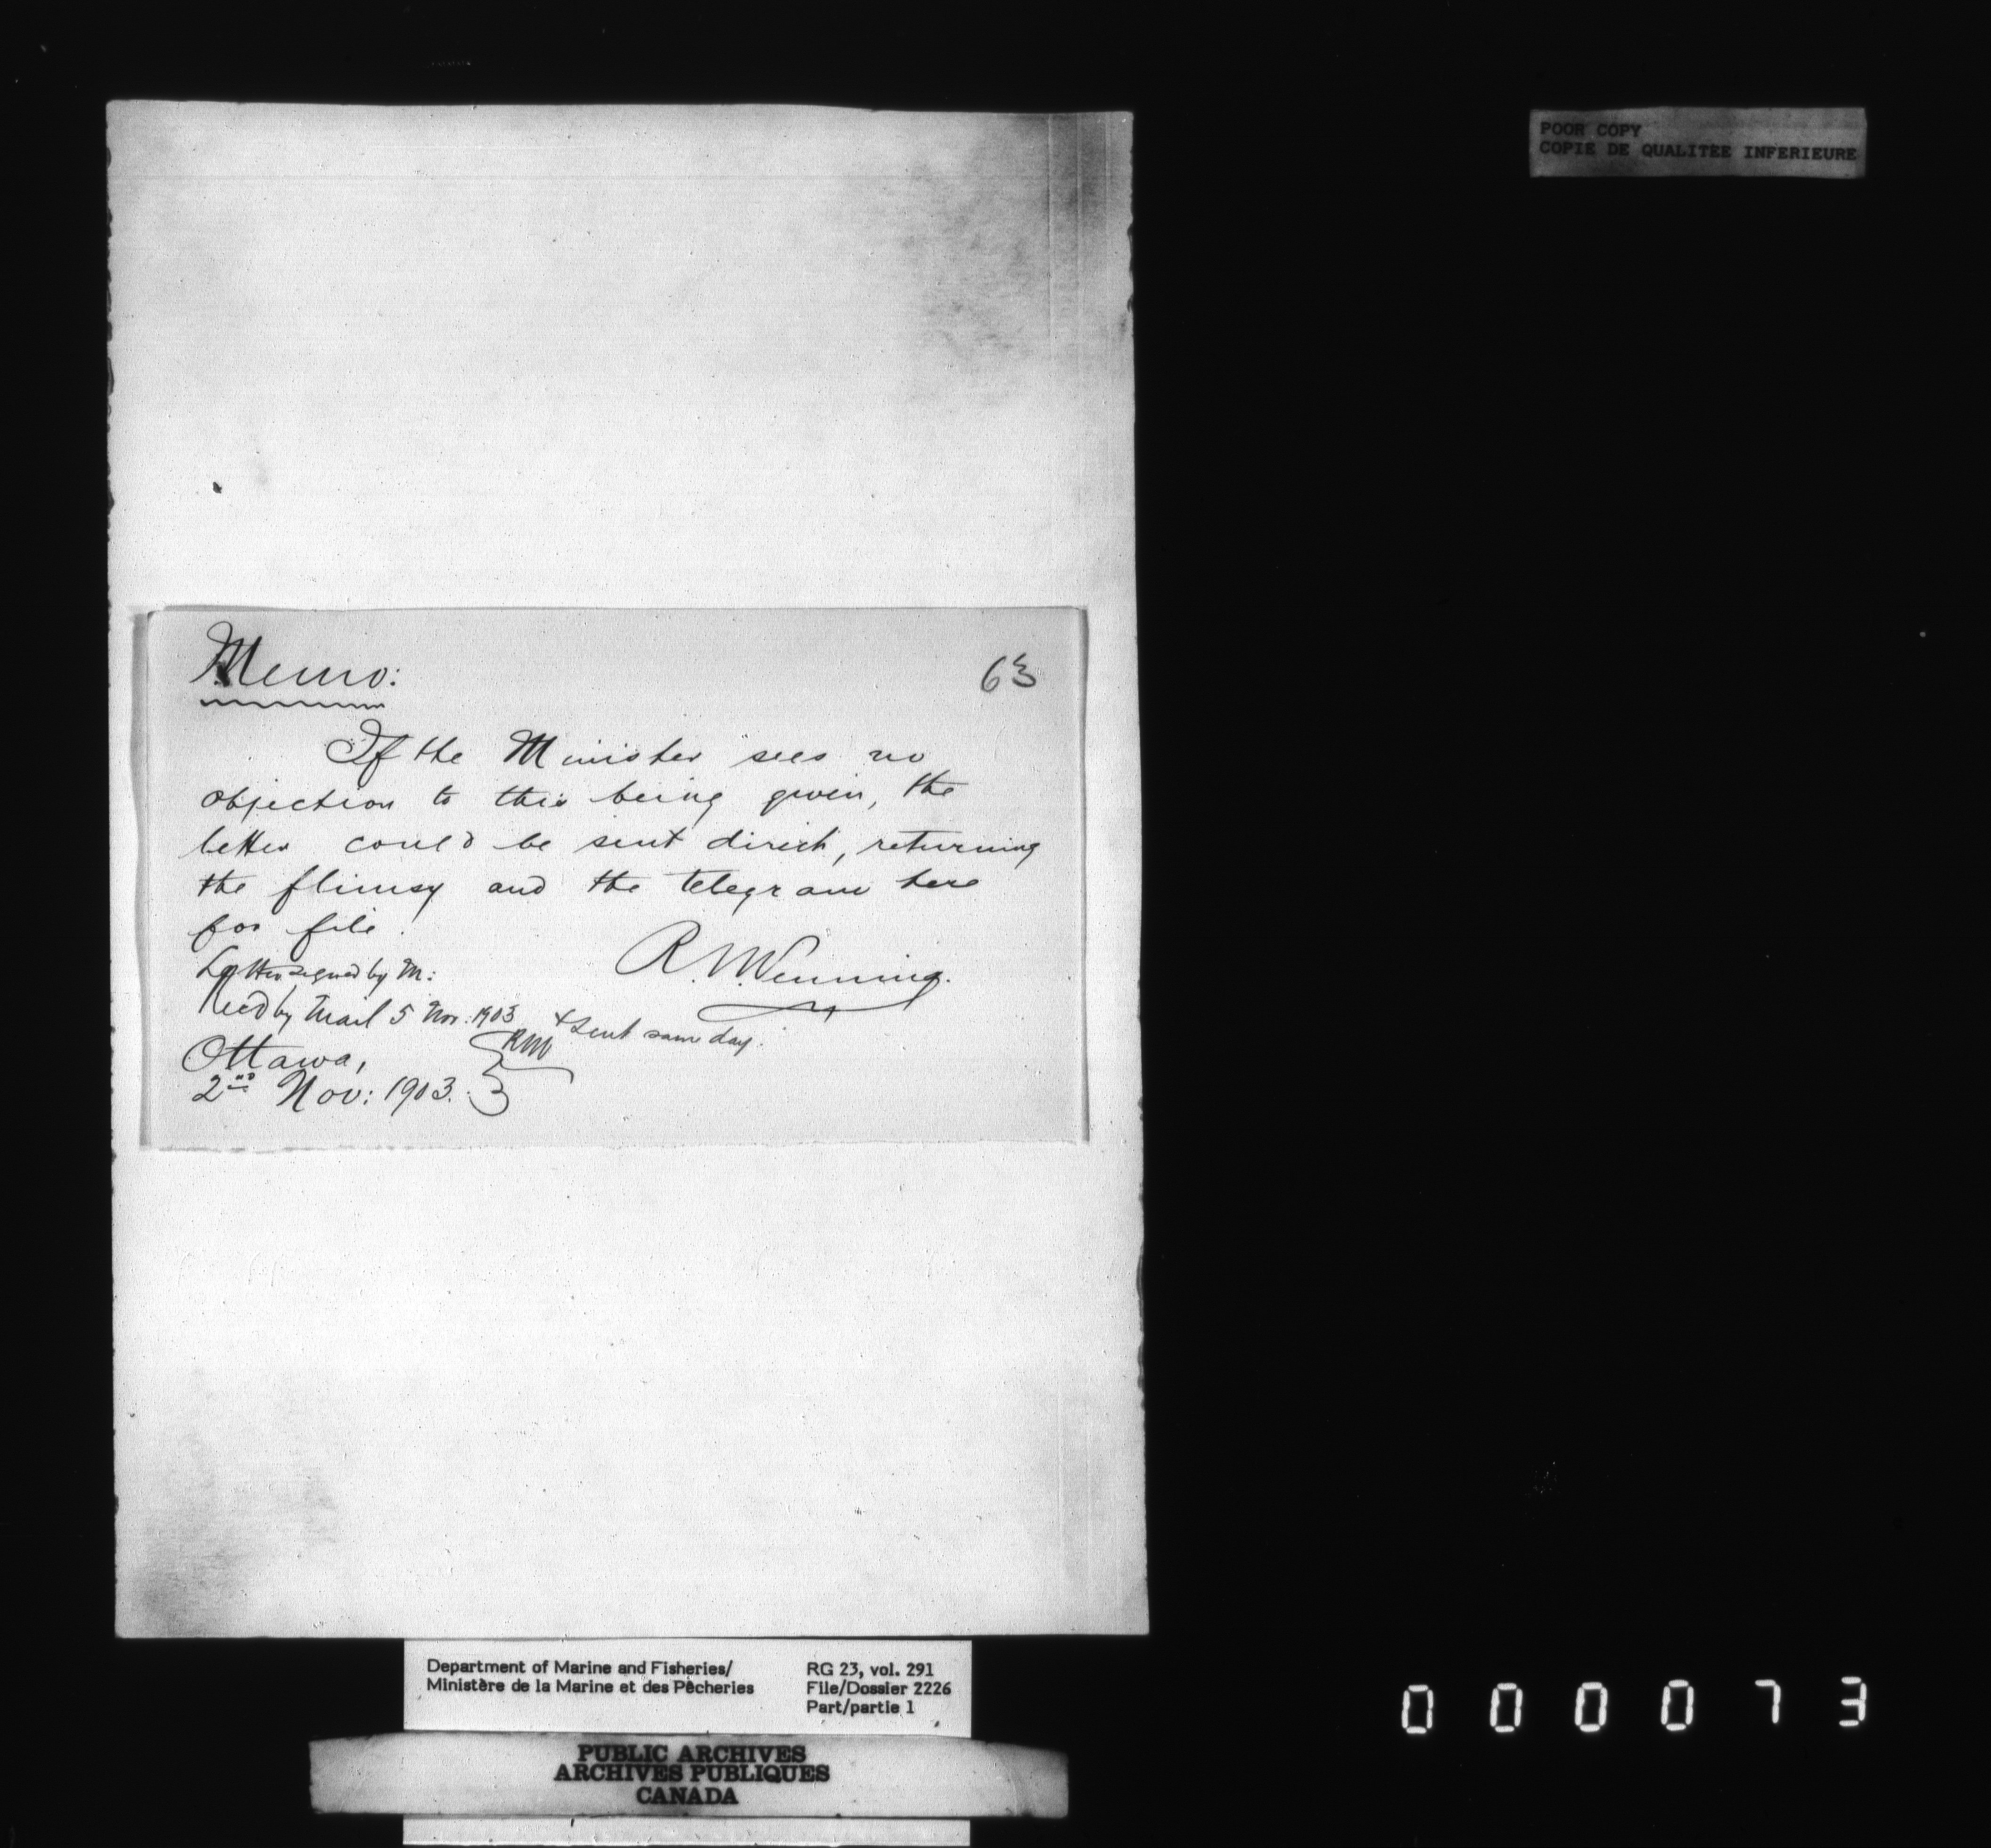 POOR COPY
COPIE DE QUALITEE INFERIEURE
Memo:
63
If the Minister sees no
objection to this being given, the
letter could be sent direct, returning
the flimsy and the telegram here
for file.
R. N. Venning.
Letter signed by M:
Recd by Mail 5 Nov: 1903 & sent same day.
RNV
Ottawa,
2nd Nov: 1903.
Department of Marine and Fisheries/
Ministère de la Marine et des Pêcheries
RG 23, vol. 291
File/Dossier 2226
Part/partie 1
PUBLIC ARCHIVES
ARCHIVES PUBLIQUES
CANADA
000073